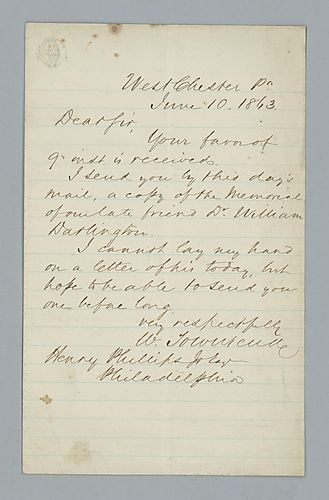 West Chester Pa
June 10. 1863.
Dear Sir,
Your favor of
9th inst is received.
I send you by this day's
mail, a copy of the Memorial
of our late friend Dr. William
Darlington.
I cannot lay my hand
on a letter of his today, but
hope to be able to send you
one before long.
very respectfully
W. Townsend
Henry Phillips Jr Esq
Philadelphia